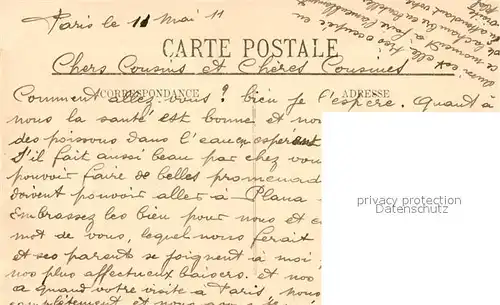 Paris le 11 Mai 11
CARTE POSTALE
Chers Cousins et Chères Cousines
CORRESPONDANCE ADRESSE
Comment allez-vous ? bien je l'espère. Quant à
nous la santé est bonne et nou
des poissons dans l'eau en espérant
S'il fait aussi beau par chez vou
pouvoir faire de belles promenad
doivent pouvoir aller à Plana
Embrassez les bien pour nous et
mot de vous, lequel nous ferait
et ses parents se joignent à moi
nos plus affectueux baisers. et nos
a quand votre visite à Paris nous
complètement et nous
privacy protection
Datenschutz